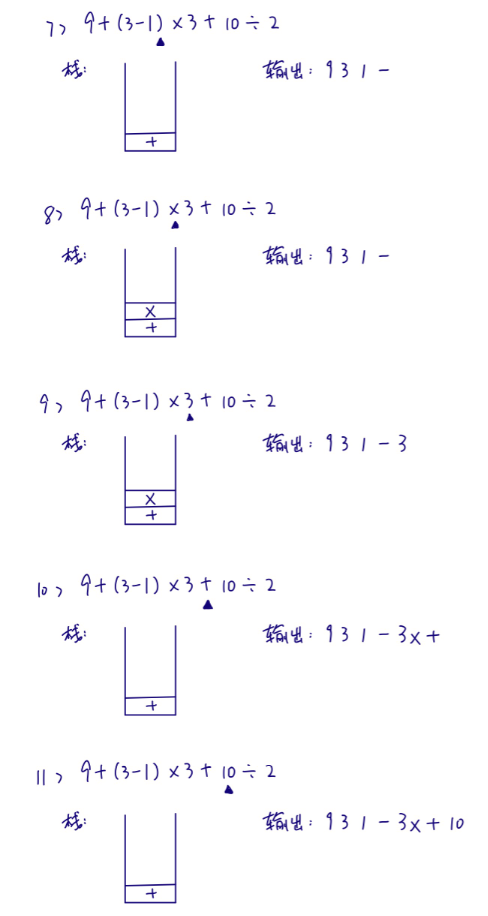 7> 9+(3-1)×3+10÷2
栈: 输出: 9 3 1 -
+
8> 9+(3-1)×3+10÷2
栈: 输出: 9 3 1 -
×
+
9> 9+(3-1)×3+10÷2
栈: 输出: 9 3 1 - 3
×
+
10> 9+(3-1)×3+10÷2
栈: 输出: 9 3 1 - 3 × +
+
11> 9+(3-1)×3+10÷2
栈: 输出: 9 3 1 - 3 × + 10
+